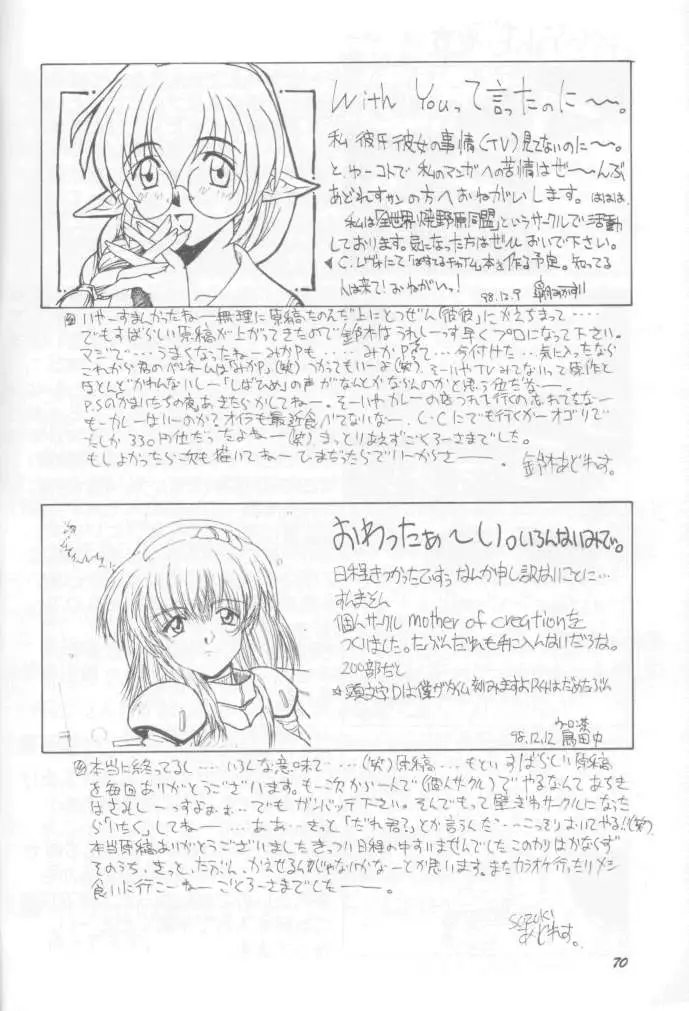 With Youって言ったのに〜。
私 彼氏彼女の事情(TV)見てないのに〜。
と、ゆーコトで私のマンガへの苦情はぜ〜んぶ
あどれすサンの方へおねがいします。ははは
私は「全世界 野原同盟」というサークルで活動
しております。気になった方はぜひおいで下さい。
本を作る予定。知ってる
人は来て!おねがい。!
98.12.9
いやーすまんかったねー無理に原稿たのんだ上にとつぜん(彼彼)にかえちまって‥‥
でもすばらしい原稿が上がってきたので鈴木はうれしーっす早くプロになって下さい。
マジで‥‥うまくなったねーみかPも‥‥みかPって‥‥今付けた‥‥気に入ったなら
これから君のペンネームは「みかP」(笑)つかってもいーよ(笑)。そーいやTVみてないって原作と
ほとんどかわんないしー「しばひめ」の声がなんとかならんのかと思う位だなー。
P.Sのかまいたちの夜、あきたらかしてねー。そーいやカレーの店つれて行くの忘れてたなー
もーカレーはいーのか?オイラも最近食べてないなー、C・Cにでも行くかーオゴリで
たしか330円位だったよねー(笑)、まっとりあえずごくろーさまでした。
もしよかったら次も描いてねーひまだったらでいーからさー。
鈴木あどれす。
おわったぁ〜い。いろんないみで。
日程きつかったですぅ なんか申し訳ないことに…
すんません
個人サークル mother of creationを
つくりました。たぶんだれも手に入んないだろな。
200部だし
☆頭文字Dは僕がタイム刻みますよ
98.12.12
本当に終ってるし‥‥いろんな意味で‥‥(笑)原稿‥‥もといすばらしい原稿
を毎回ありがとうございます。もー次から一人で(個人サークル)でやるなんてあちき
はさみし〜っすよぉぉ…でもガンバッテ下さい。そんでもって壁ぎわサークルになった
ら「いたく」してねー‥‥ああ‥きっと「だれ君?」とか言うんだ‥こっそりおいてやる!!(笑)
本当原稿ありがとうございましたきっつい日程の中すいませんでしたこのかりはかなくず
そのうち、きっと、たぶん、かえせるんじゃないかなーとか思います。またカラオケ行ったりメシ
食いに行こーねーごくろーさまでしたー。
suzuki
あどれす。
70